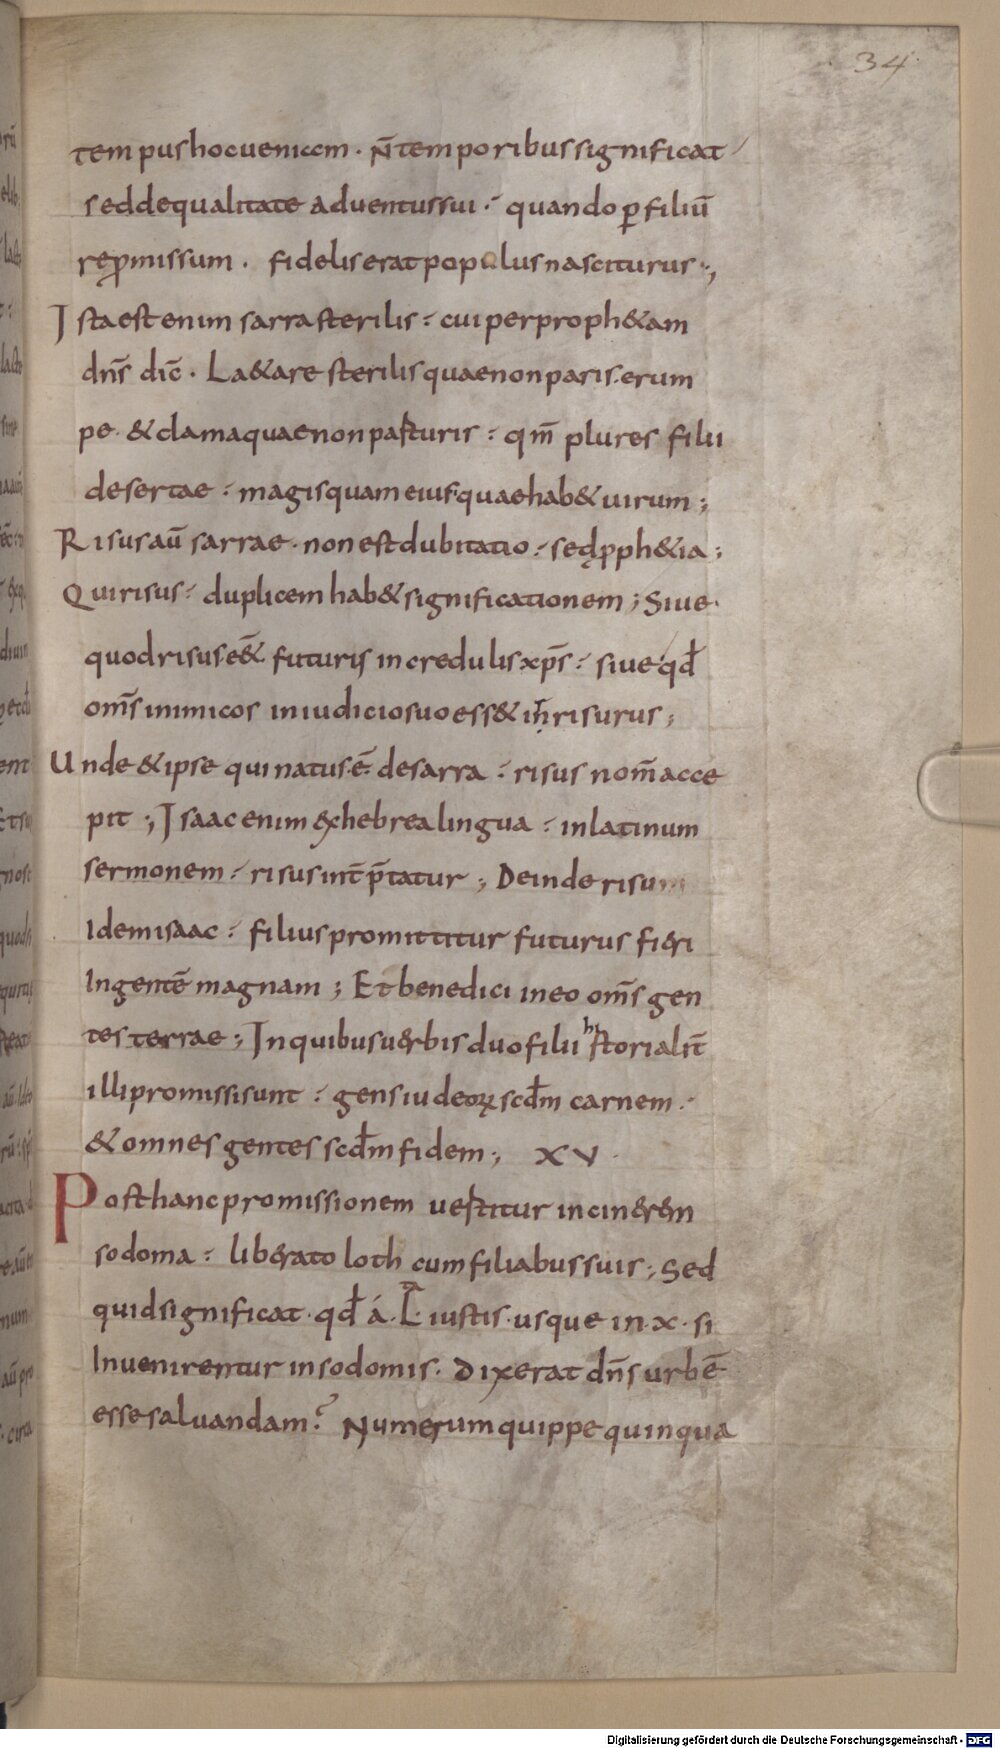 34
tempus hoc ueniam · N̄ temporibus significat
sed de qualitate aduentus sui · quando ꝑ filiū
repromissum · fidelis erat populus nasciturus ·,
Ista est enim sarra sterilis : cui per proph&am
dn̄s dic̄ · La&are sterilis quae non paris · erum
pe · & clama quae non parturis : qm̄ plures filii
desertae : magis quam eius · quae hab& uirum ;
Risus aū sarrae · non est dubitatio : sed ꝓph&ia ;
Qui risus : duplicem hab& significationem ; Siue ·
quod risus · eēt futuris incredulis xp̄s : siue qđ
om̄s inimicos in iudicio suo ess& irrisurus ;
Unde & ipse qui natus · ē · de sarra : risus nom̄ acce
pit ·, Isaac enim ex hebrea lingua : in latinum
sermonem : risus int̄p̄tatur ; Deinde risum
Idem isaac : filius promittitur futurus fieri
In gentē magnam ; Et benedici in eo om̄s gen
tes terrae ; In quibus uerbis duo filii hystorialit̄
illi promissi sunt : gens iudeoꝝ scđm carnem ·
& omnes gentes scđm fidem ·, XV ·
Post hanc promissionem uestitur in cinerem
sodoma : liberato loth cum filiabus suis ·, Sed
quid significat · qđ á · L · iustis · usque in · x · si
Inuenirentur in sodomis · Dixerat dn̄s urbē
esse saluandam ? Numerum quippe quinqua
Digitalisierung gefördert durch die Deutsche Forschungsgemeinschaft - DFG